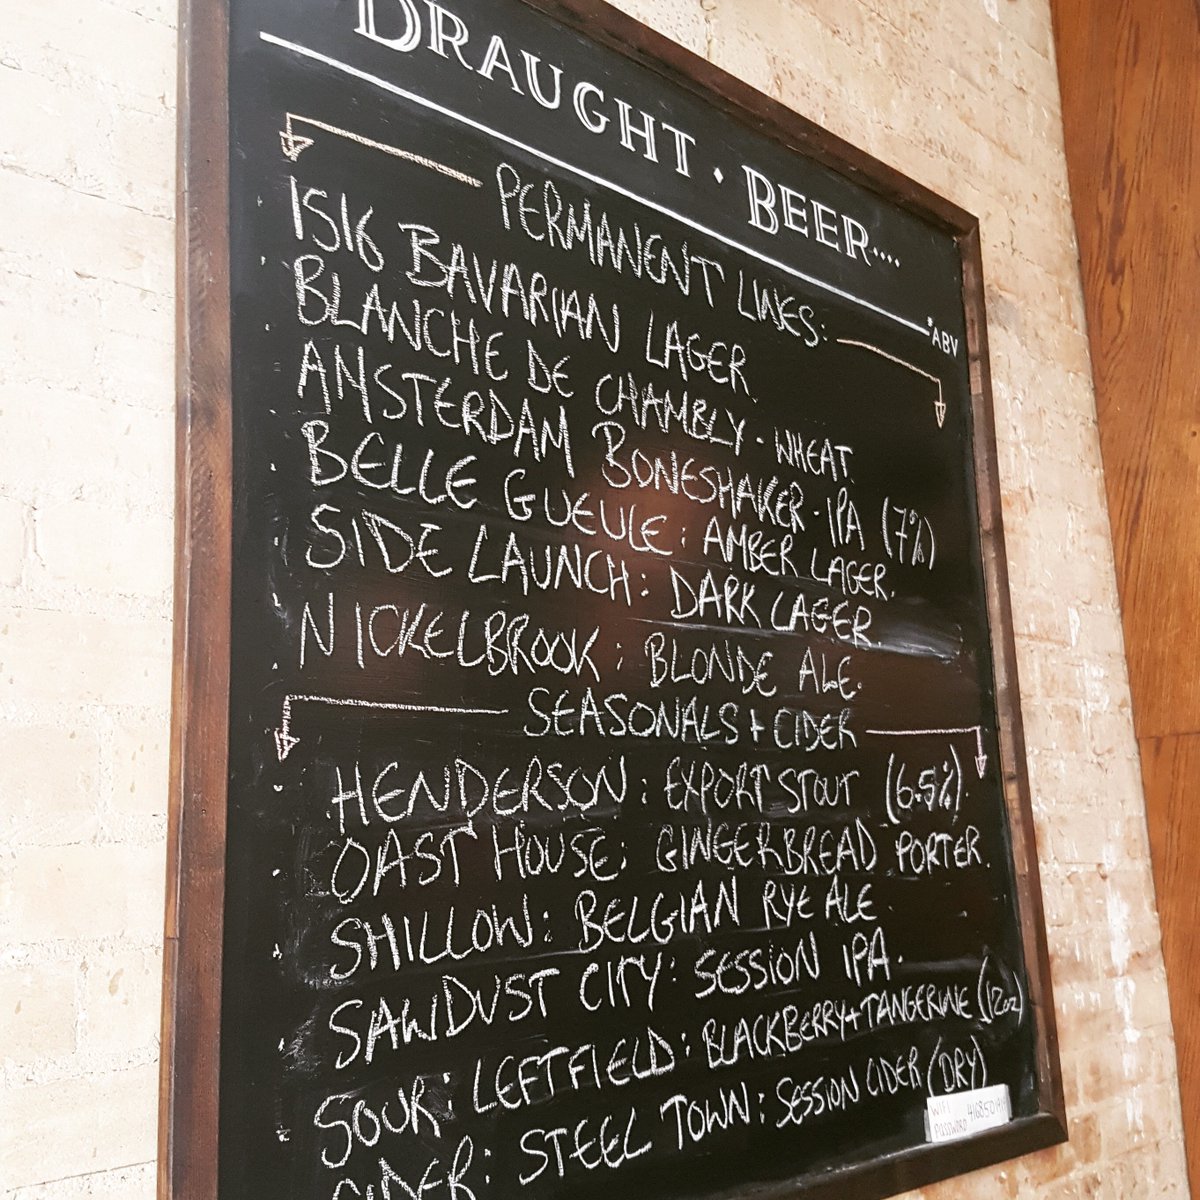 DRAUGHT · BEER....
ABV
PERMANENT LINES:
1516 BAVARIAN LAGER
BLANCHE DE CHAMBLY - WHEAT
AMSTERDAM BONESHAKER - IPA (7%)
BELLE GUEULE: AMBER LAGER.
SIDE LAUNCH: DARK LAGER.
NICKELBROOK: BLONDE ALE.
SEASONALS + CIDER
HENDERSON: EXPORT STOUT (6.5%).
OAST HOUSE: GINGERBREAD PORTER.
SHILLOW: BELGIAN RYE ALE.
SAWDUST CITY: SESSION IPA.
SOUR: LEFTFIELD: BLACKBERRY + TANGERINE (12oz)
CIDER: STEEL TOWN: SESSION CIDER (DRY)
WIFI
PASSWORD